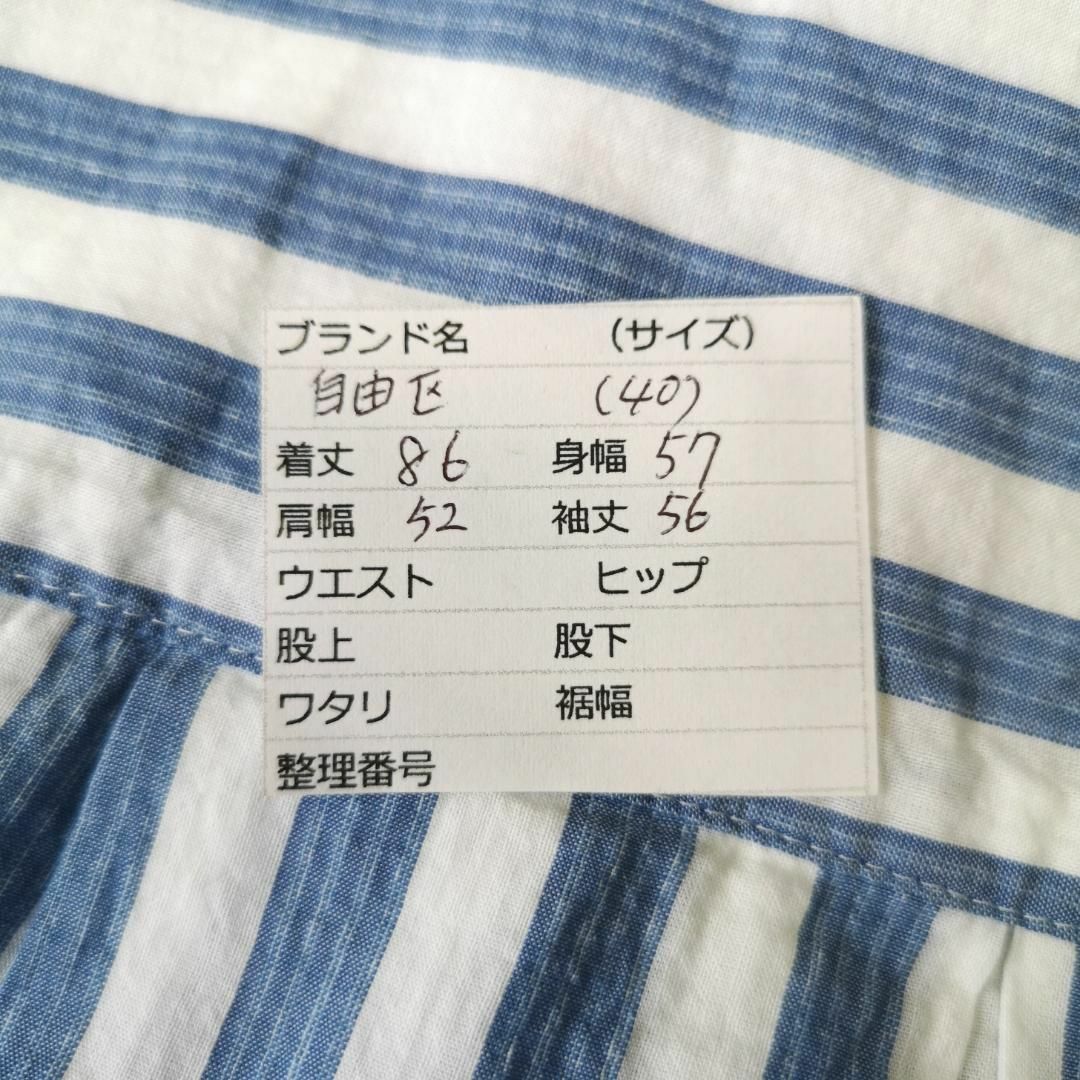 ブランド名 （サイズ）
自由区 (40)
着丈 86 身幅 57
肩幅 52 袖丈 56
ウエスト ヒップ
股上 股下
ワタリ 裾幅
整理番号